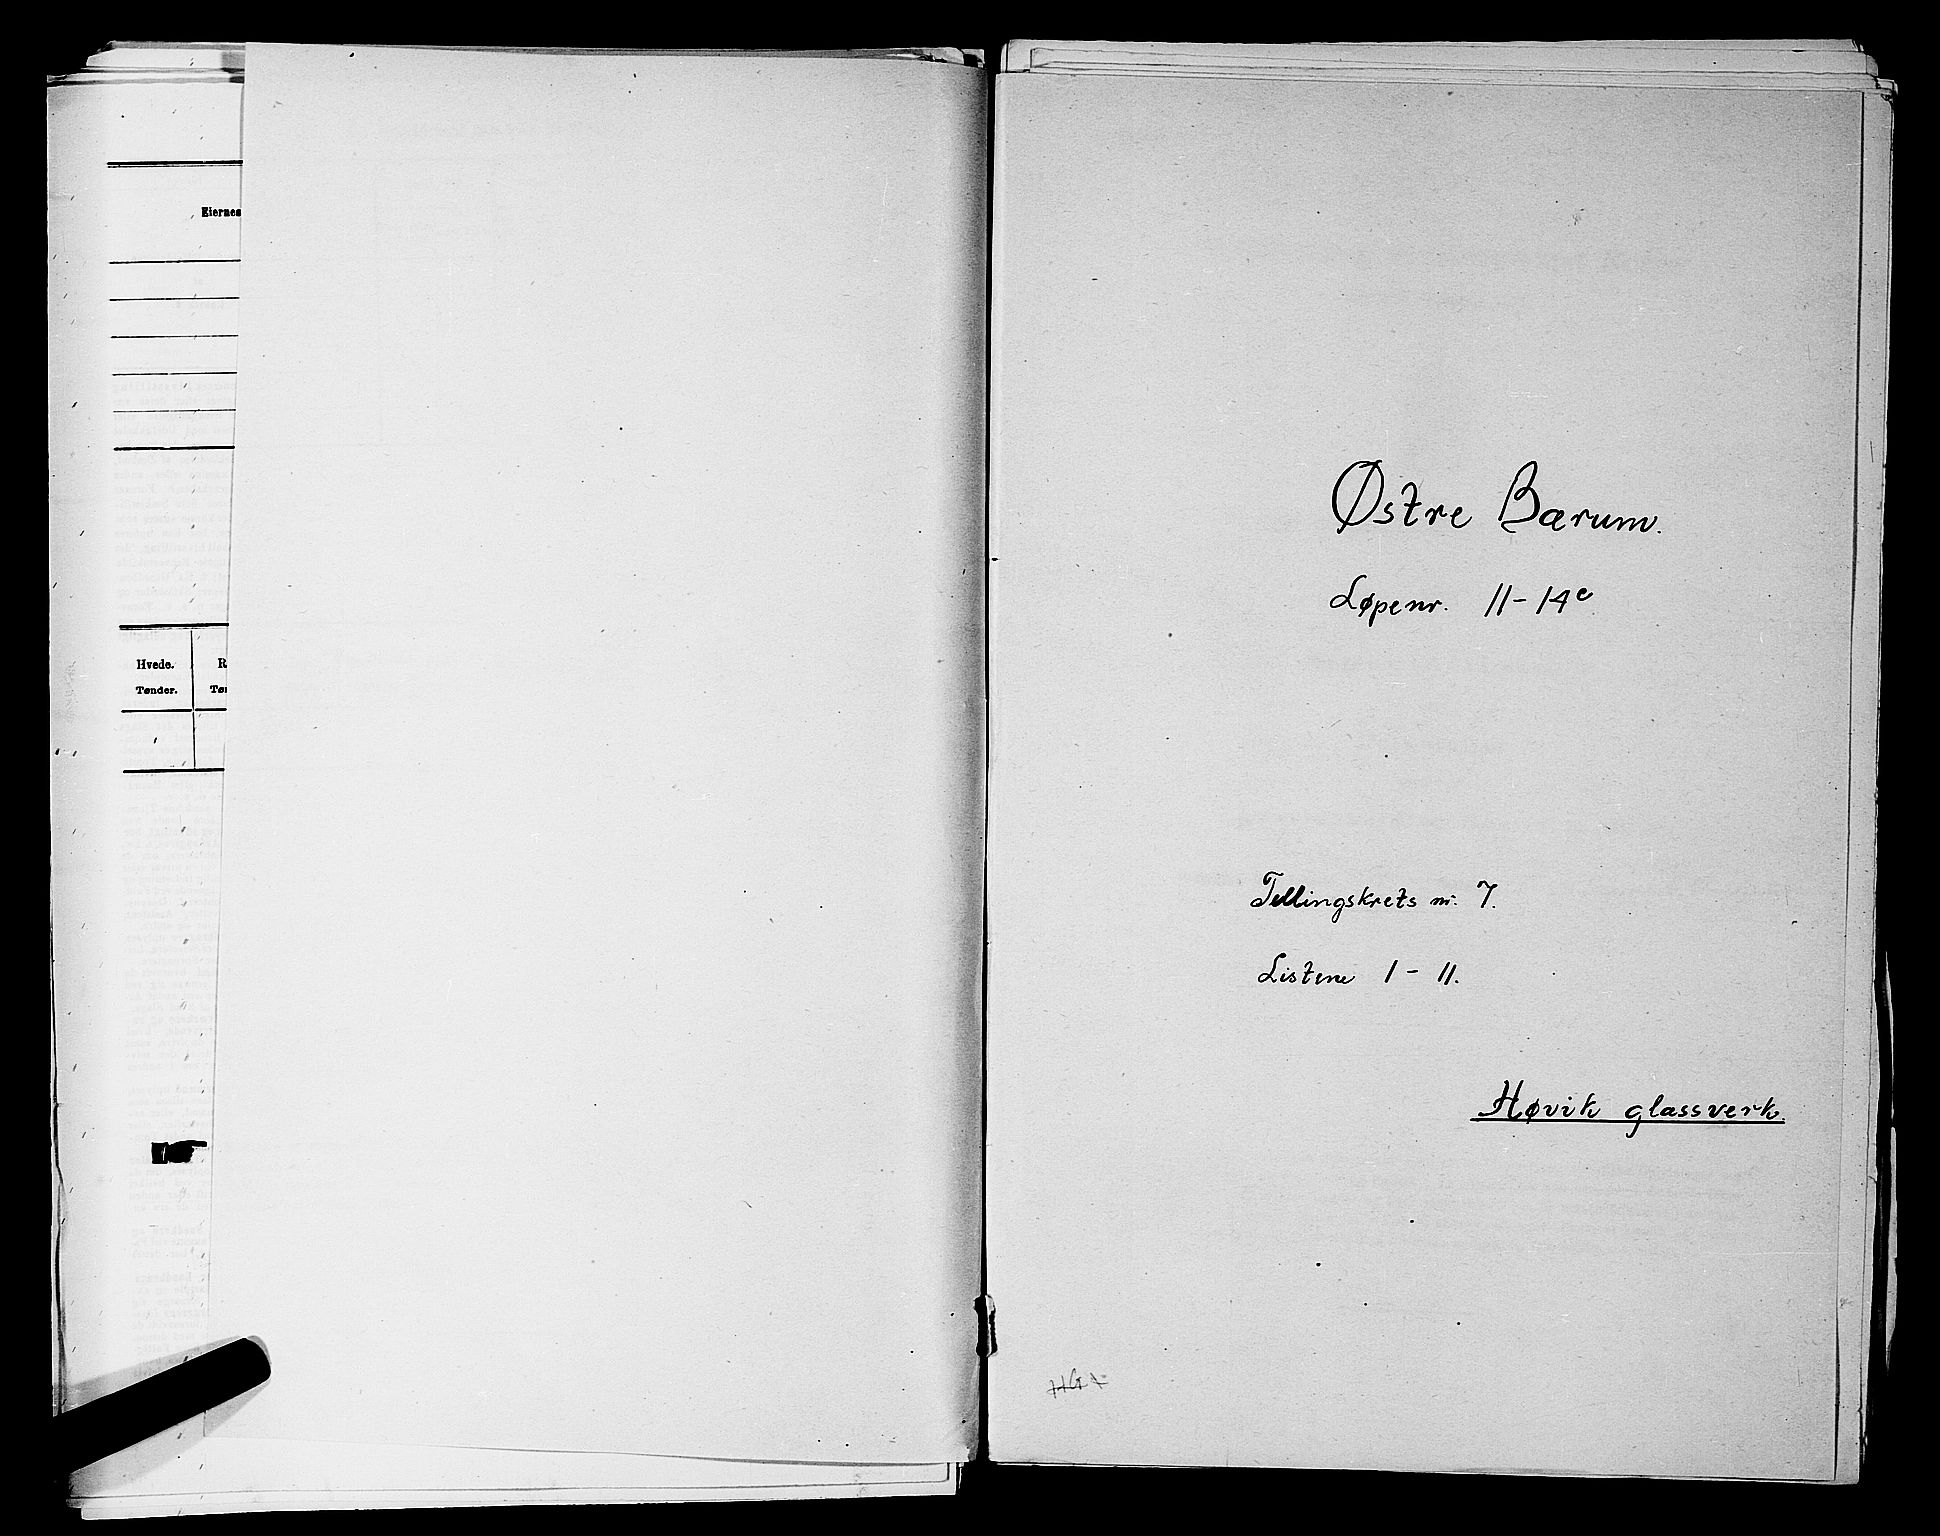 Eiernes
Hvede. R
Tønder. Tøn
Østre Bærum.
Løpenr. 11-14e
Tellingskrets nr. 7.
Listene 1 - 11.
Høvik glassverk.